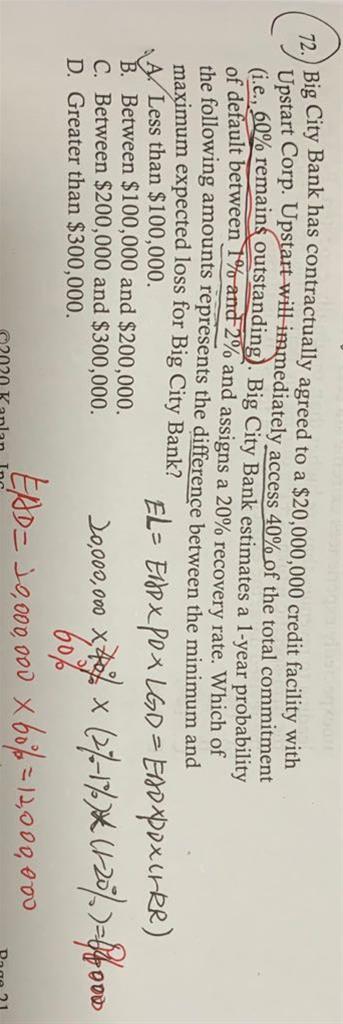 72. Big City Bank has contractually agreed to a $20,000,000 credit facility with
Upstart Corp. Upstart will immediately access 40% of the total commitment
(i.e., 60% remains outstanding). Big City Bank estimates a 1-year probability
of default between 1% and 2% and assigns a 20% recovery rate. Which of
the following amounts represents the difference between the minimum and
maximum expected loss for Big City Bank?
A. Less than $100,000.
B. Between $100,000 and $200,000.
C. Between $200,000 and $300,000.
D. Greater than $300,000.
EL = EAD x PD x LGD = EAD x PD x (1-RR)
20,000,000 x 40% x (2%-1%) x (1-20%) =
60%
EAD = 20,000,000 x 60% = 12,000,000
©2020 Kaplan, Inc.
Page 21